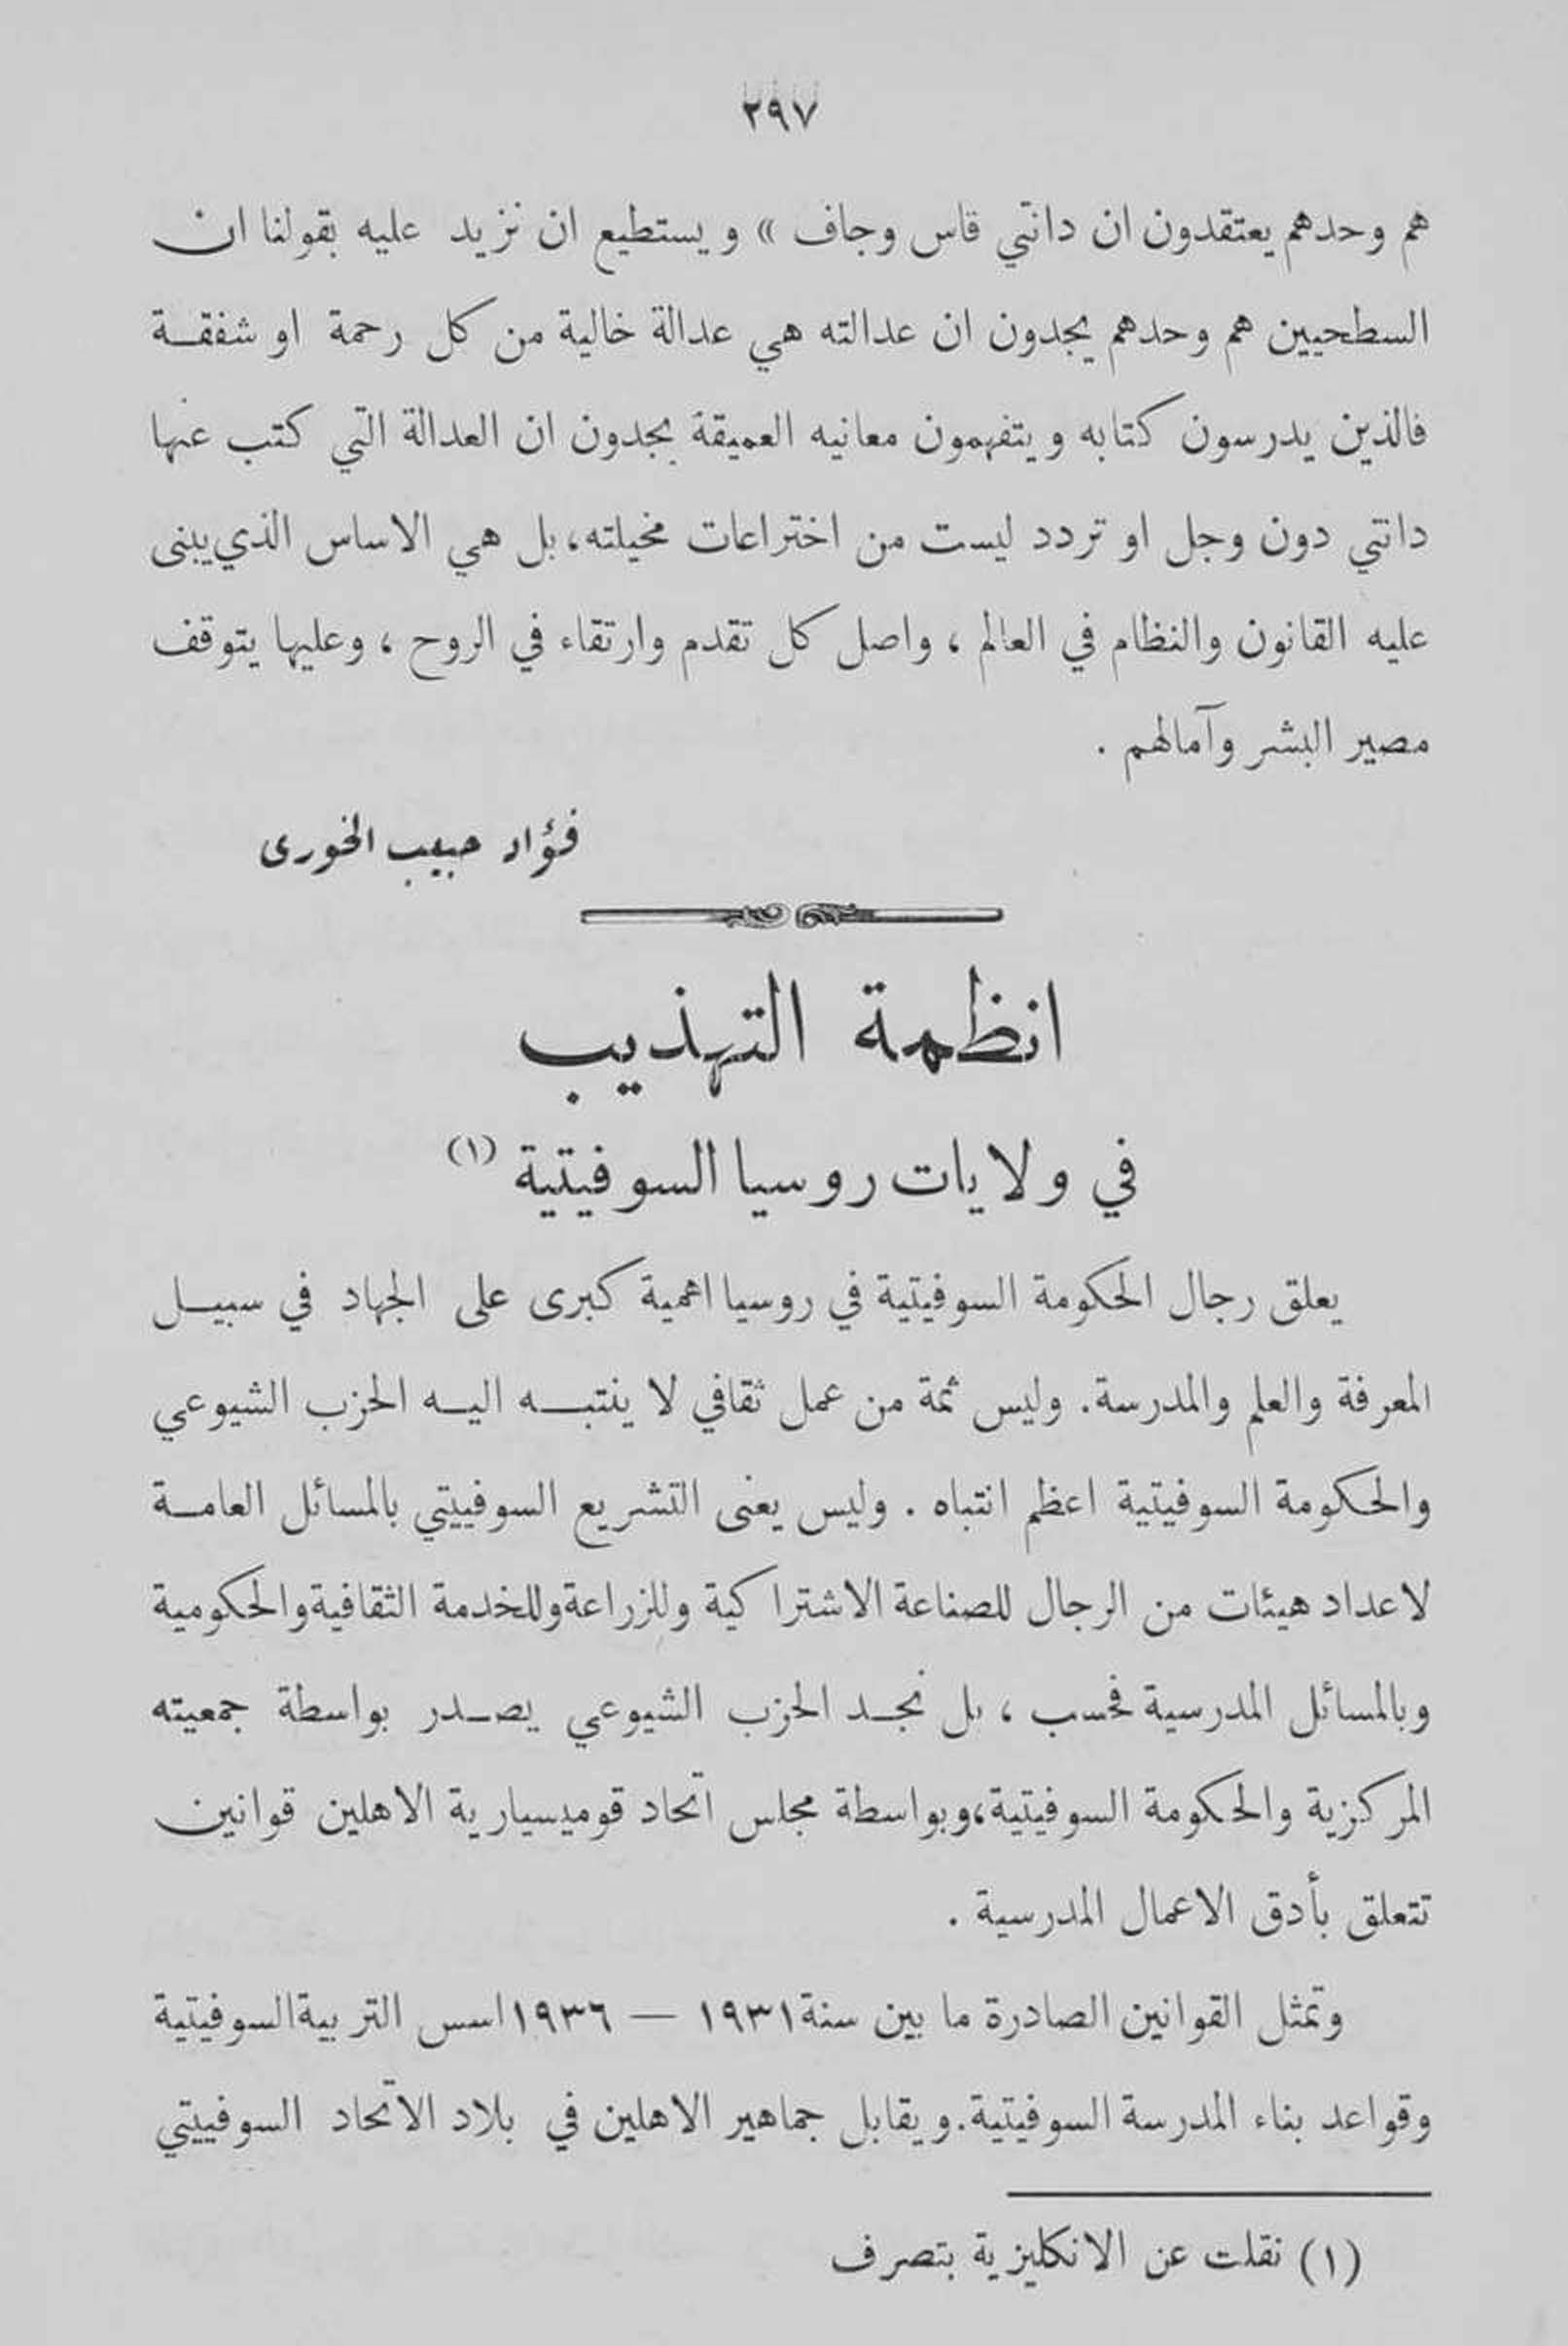 ٢٩٧
هم وحدهم يعتقدون ان دانتي قاس وجاف » ويستطيع ان نزيد عليه بقولنا ان
السطحيين هم وحدهم يجدون ان عدالته هي عدالة خالية من كل رحمة او شفقة
فالذين يدرسون كتابه ويتفهمون معانيه العميقة يجدون ان العدالة التي كتب عنها
دانتي دون وجل او تردد ليست من اختراعات مخيلته، بل هي الاساس الذي يبنى
عليه القانون والنظام في العالم ، واصل كل تقدم وارتقاء في الروح ، وعليها يتوقف
مصير البشر وآمالهم .
فؤاد حبيب الخورى
انظمة التهذيب
في ولايات روسيا السوفيتية (١)
يعلق رجال الحكومة السوفيتية في روسيا اهمية كبرى على الجهاد في سبيل
المعرفة والعلم والمدرسة. وليس ثمة من عمل ثقافي لا ينتبه اليه الحزب الشيوعي
والحكومة السوفيتية اعظم انتباه . وليس يعنى التشريع السوفييتي بالمسائل العامة
لاعداد هيئات من الرجال للصناعة الاشتراكية وللزراعة وللخدمة الثقافية والحكومية
وبالمسائل المدرسية فحسب ، بل نجد الحزب الشيوعي يصدر بواسطة جمعيته
المركزية والحكومة السوفيتية، وبواسطة مجلس اتحاد قوميسيارية الاهلين قوانين
تتعلق بأدق الاعمال المدرسية .
وتمثل القوانين الصادرة ما بين سنة ١٩٣١ — ١٩٣٦ اسس التربية السوفيتية
وقواعد بناء المدرسة السوفيتية. ويقابل جماهير الاهلين في بلاد الاتحاد السوفييتي
(١) نقلت عن الانكليزية بتصرف